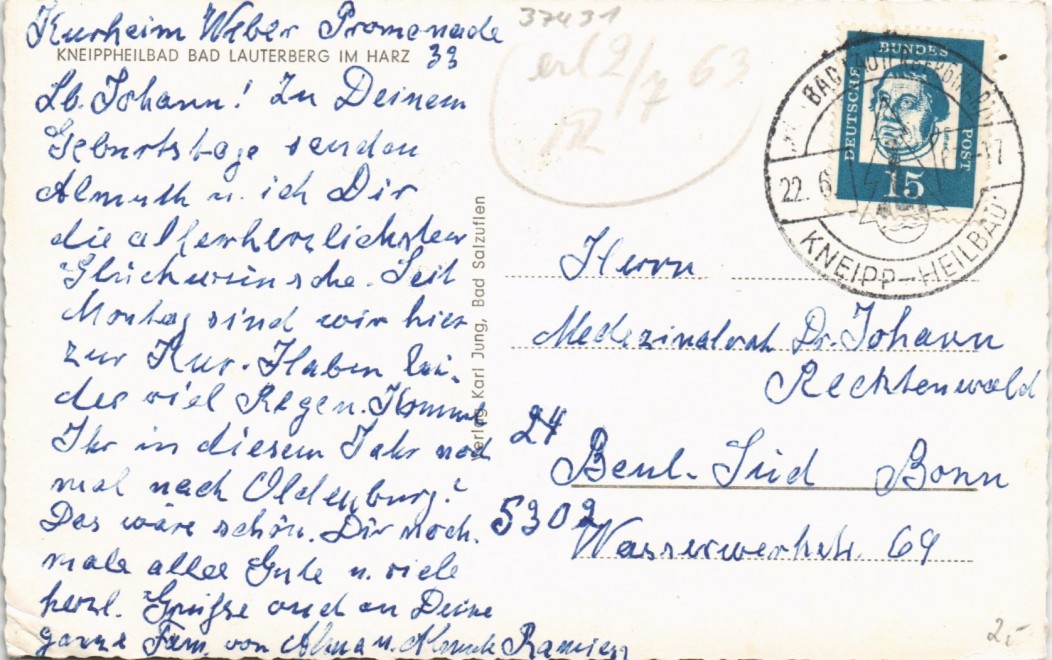 Kurheim Weber Promenade
KNEIPPHEILBAD BAD LAUTERBERG IM HARZ 33
Lb. Johann! Zu Deinem
Geburtstage senden
Almuth u. ich Dir
die allerherzlichsten
Glückwünsche. Seit
Montag sind wir hier
zur Kur. Haben lei-
der viel Regen. Kommt
Ihr in diesem Jahr noch
mal nach Oldenburg?
Das wäre schön. Dir noch-
mals alles Gute u. viele
herzl. Grüsse auch an Deine
ganze Fam. von Alma u. Almuth
Verlag Karl Jung, Bad Salzuflen
37431
erl 2/7 63
DEUTSCHE
BUNDES
POST
15
22. 6
KNEIPP-HEILBAD
Herrn
Medezinalrat Dr. Johann
Rechtenwald
24
Beul-Süd Bonn
5302
Wasserwerkstr. 69
2,-